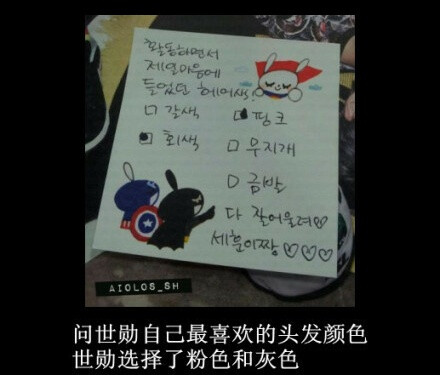 활동하면서
제일마음에
들었던 헤어색!
□ 갈색 ■ 핑크
■ 회색 □ 무지개
□ 금발
다 잘어울려♡
세훈이짱♡♡♡
AIOLOS_SH
问世勋自己最喜欢的头发颜色
世勋选择了粉色和灰色